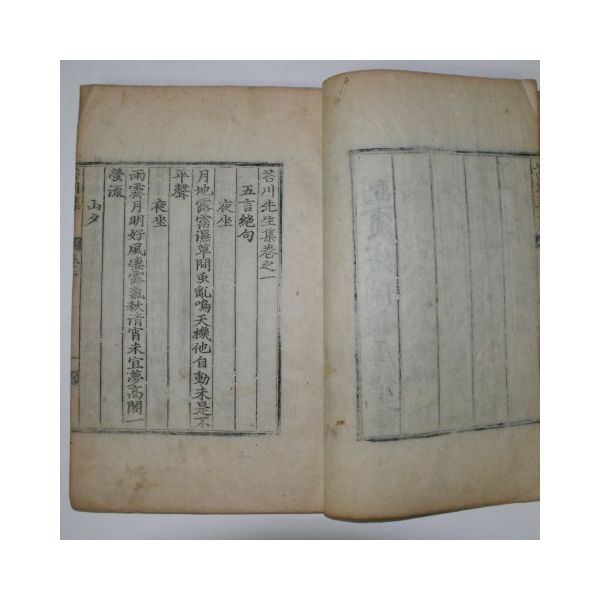 苔川先生集卷之一
五言絶句
夜坐
月地露霑濕草間虫亂鳴天機他自動未是不
平聲
夜坐
雨霽月明好風凄露氣秋清宵未宜夢高閣一
螢流
山夕